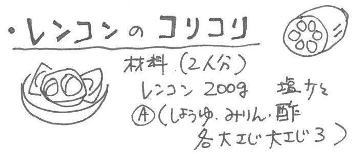 ・レンコンのコリコリ
材料(2人分)
レンコン 200g 塩少々
Ⓐ(しょうゆ、みりん・酢
各大さじ 大さじ3)